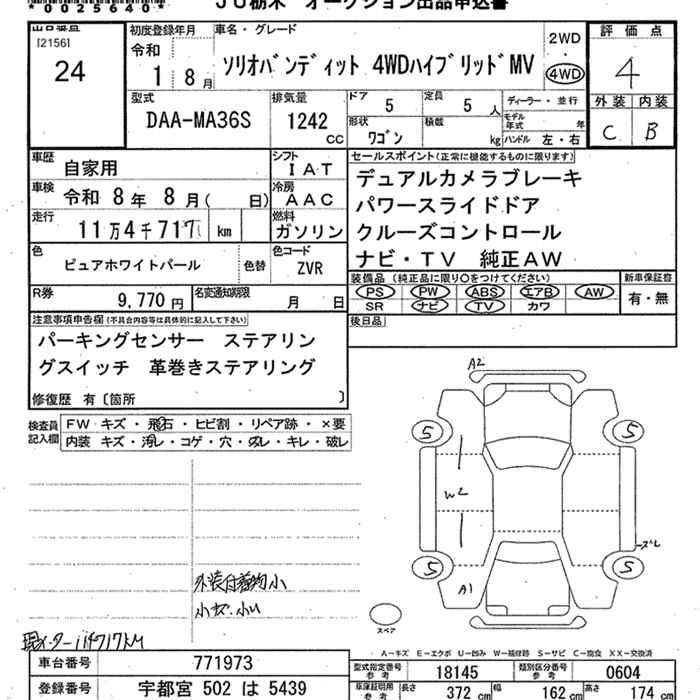 *0025640*
JU栃木 オークション出品申込書
出品番号
[2156]
24
初度登録年月
令和
1 8月
車名・グレード
ソリオバンディット 4WDハイブリッドMV
2WD
・
4WD
評価点
4
外装 内装
C B
型式
DAA-MA36S
排気量
1242
CC
ドア
5
定員
5 人
形状
ワゴン
積載
kg
ディーラー・並行
モデル年式 年
ハンドル 左・右
車歴
自家用
シフト
IAT
車検
令和 8年 8月( 日)
冷房
AAC
走行
11万4千717 km
燃料
ガソリン
色
ピュアホワイトパール
色替
色コード
ZVR
R券
9,770円
名変通知期限
月 日
セールスポイント(正常に機能するものに限ります)
デュアルカメラブレーキ
パワースライドドア
クルーズコントロール
ナビ・TV 純正AW
装備品 (純正品に限り○をつけてください)
PS PW ABS エアB AW
SR ナビ TV カワ
新車保証書
有・無
後日品
注意事項申告欄(不具合内容等は具体的に記入して下さい)
パーキングセンサー ステアリン
グスイッチ 革巻きステアリング
修復歴 有〔箇所 〕
検査員
記入欄
FW キズ・飛石・ヒビ割・リペア跡・×要
内装 キズ・汚レ・コゲ・穴・スレ・キレ・破レ
外装付着物小
現メーター114717KM
A2
5
5
W2
ズレ
5
5
A1
スペア
A-キズ E-エクボ U-凹み W-補修跡 S-サビ C-腐食 XX-交換済
車台番号
771973
登録番号
宇都宮 502 は 5439
型式指定番号
参考
18145
類別区分番号
参考
0604
車庫証明用
参考
長さ
372 cm
幅
162 cm
高さ
174 cm